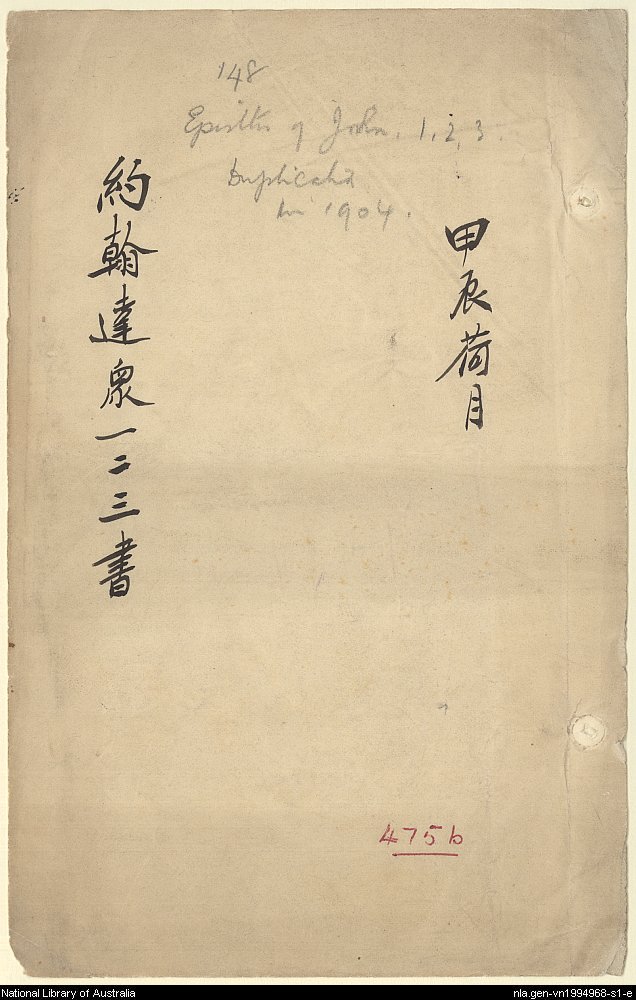 148
Epistles of John. 1, 2, 3.
Duplicated
in 1904.
甲辰荷月
約翰達衆一二三書
475b
National Library of Australia
nla.gen-vn1994968-s1-e